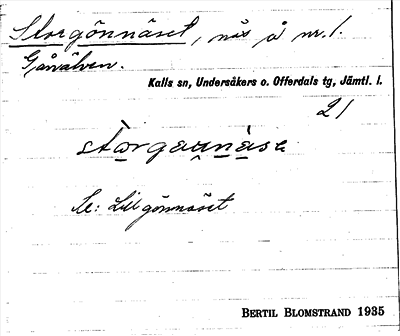 Storgönnäset, näs å nr. 1.
Gåvälven.
Kalls sn, Undersåkers o. Offerdals tg, Jämtl. l.
21
Se: Lillgönnäset
BERTIL BLOMSTRAND 1935